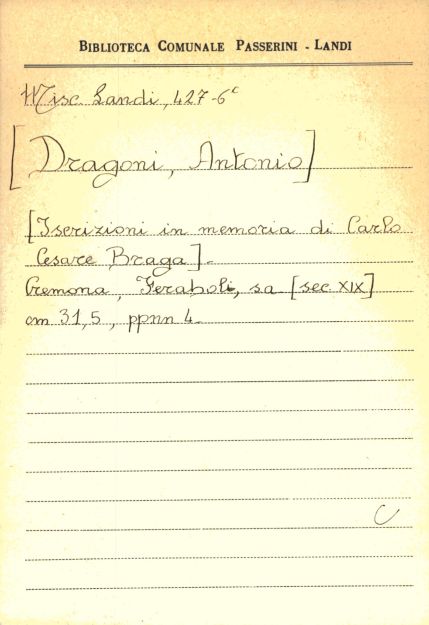 BIBLIOTECA COMUNALE PASSERINI - LANDI
Misc. Landi, 427-6c
[Dragoni, Antonio]
[Iscrizioni in memoria di Carlo
Cesare Braga]_
Cremona, Feraboli, sa [sec. XIX]
cm 31,5, ppnn 4_
C